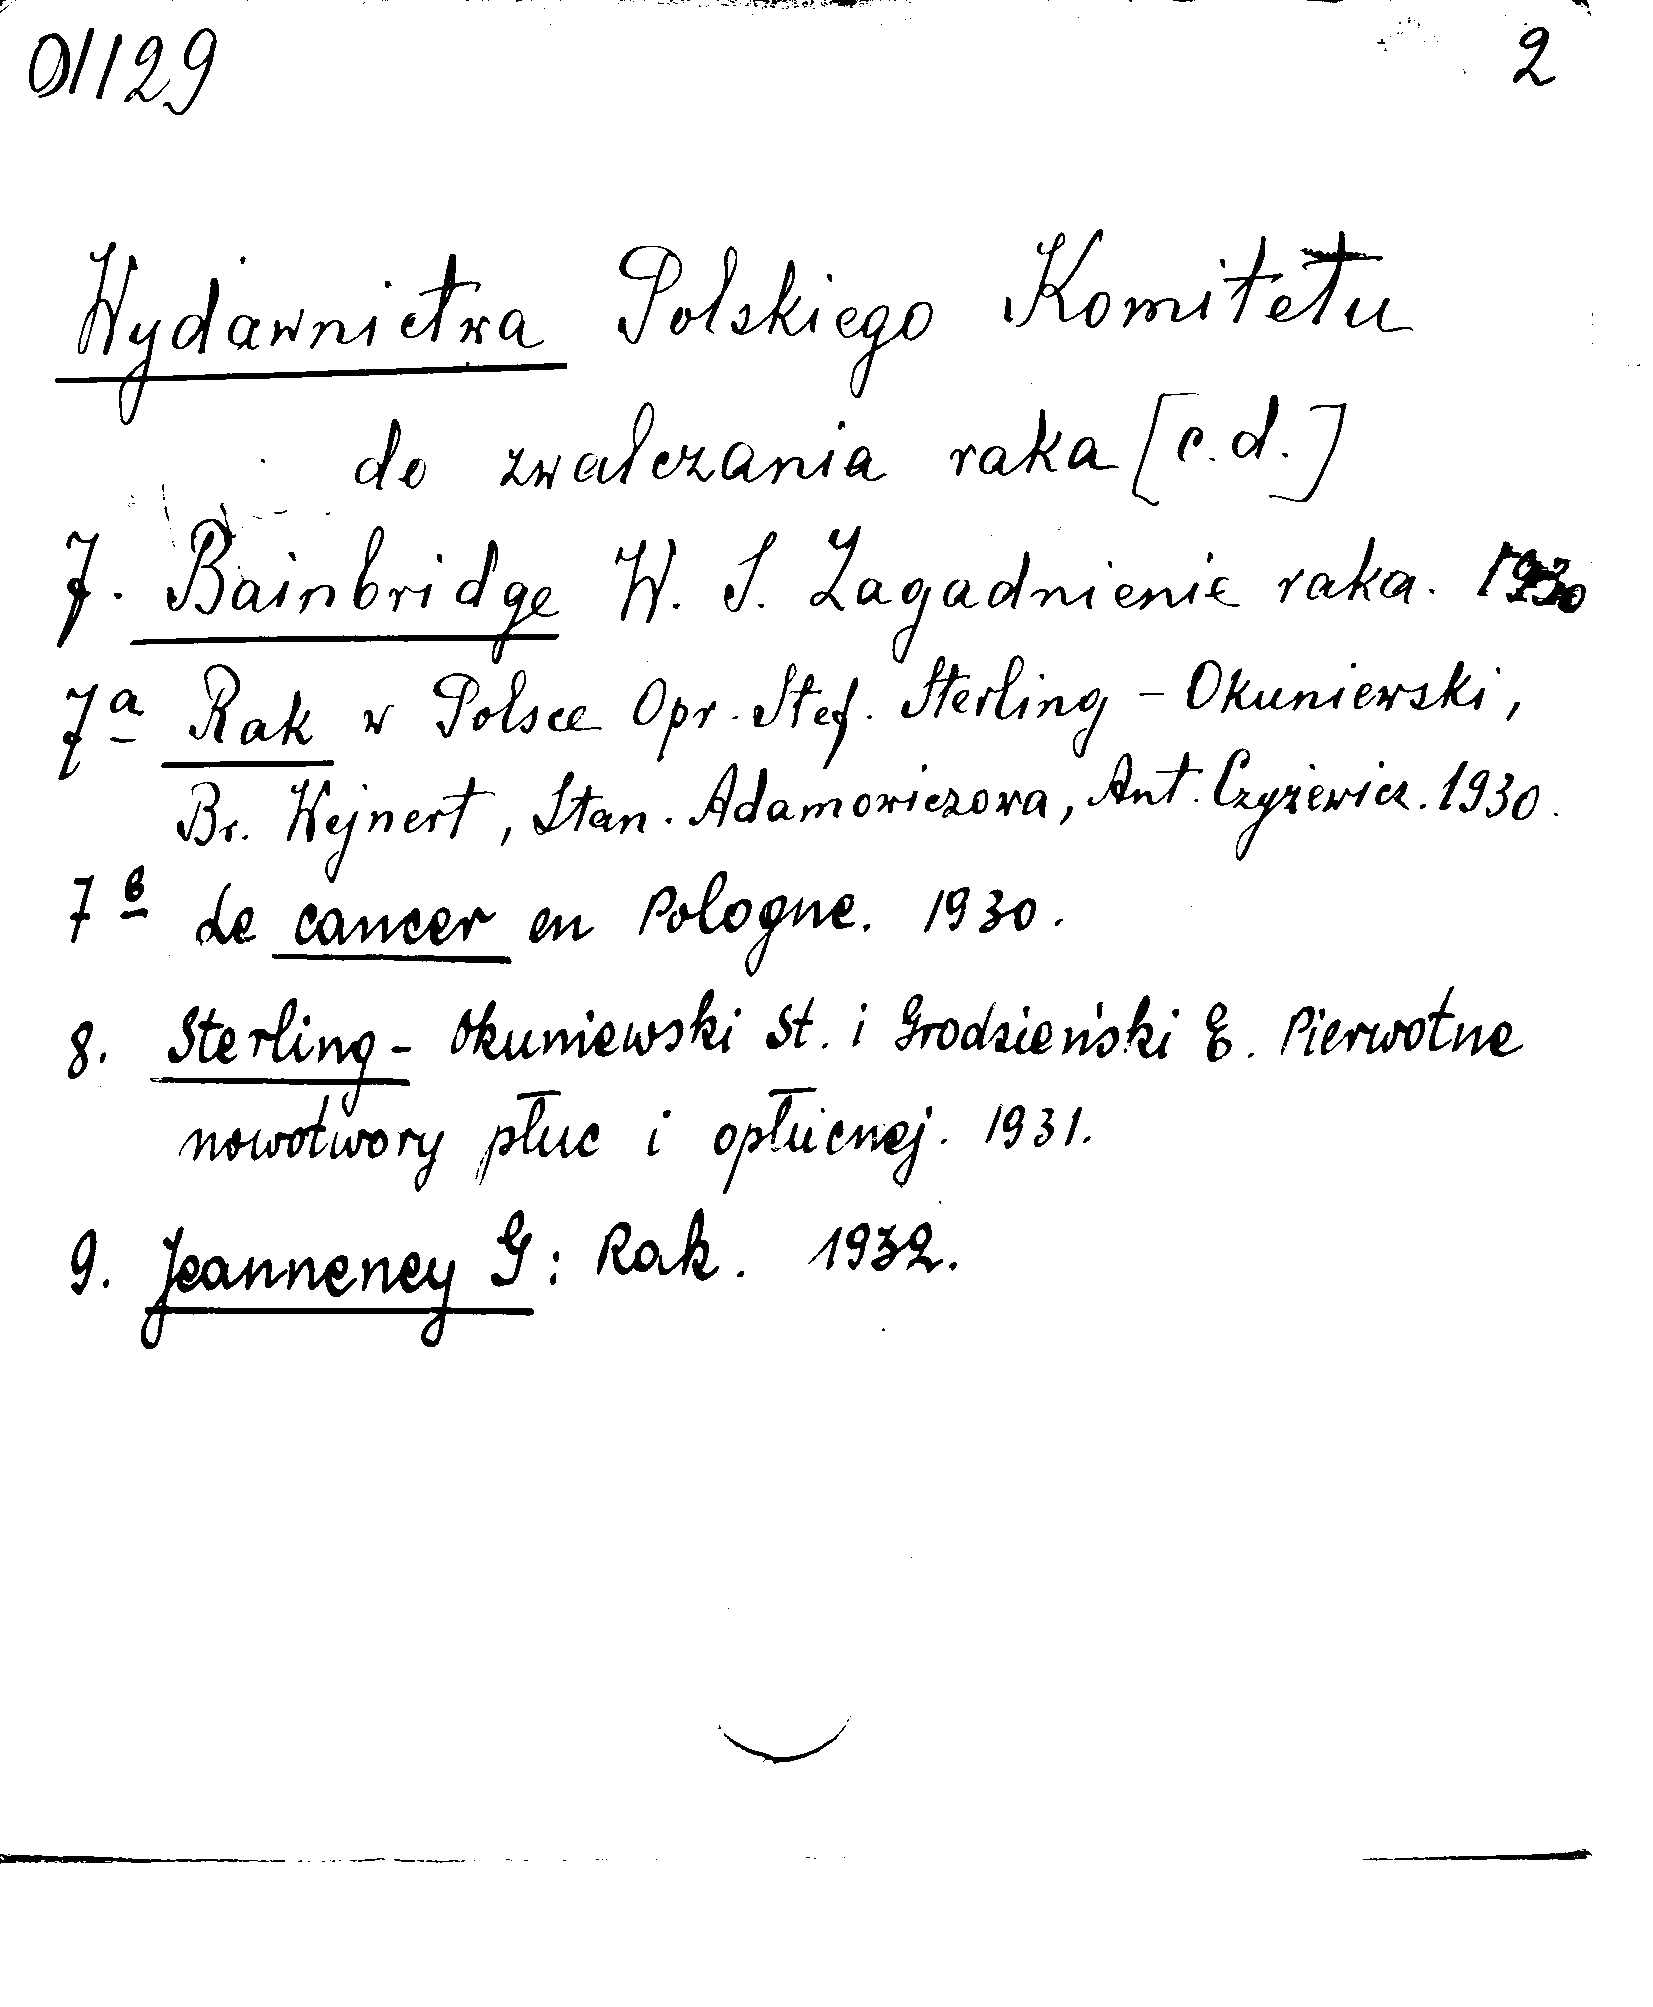 01129
2
Wydawnictwa Polskiego Komitetu
do zwalczania raka [c.d.]
7. Bainbridge W. S. Zagadnienie raka. 1930
7a Rak w Polsce Opr. Stef. Sterling - Okuniewski,
Br. Wejnert, Stan. Adamowiczowa, Ant. Czyżewicz. 1930.
7b Le cancer en Pologne. 1930.
8. Sterling - Okuniewski St. i Grodzieński E. Pierwotne
nowotwory płuc i opłucnej. 1931.
9. Jeanneney G: Rak. 1932.